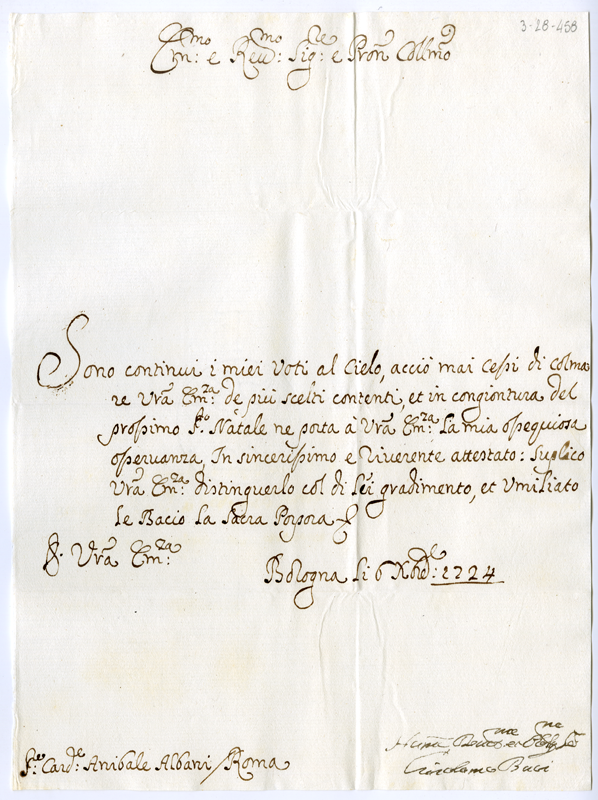 3-18-458
Em.mo e Reu.mo Sig.re e Pron Collmo
Sono continui i miei Voti al Cielo, acciò mai Cessi di colma
re Vrã Em.za de più scelti contenti, et in congiontura del
prossimo S.to Natale ne porta à Vrã Em.za la mia ossequiosa
osseruanza, Un sincerissimo e riuerente attestato: Suplico
Vrã Em.za distinguerlo col di Lei gradimento, et Vmiliato
le Bacio la Sacra Porpora
D. Vrã Em.za
Bologna li 6 Xbre: 1724
Card.le Anibale Albani / Roma